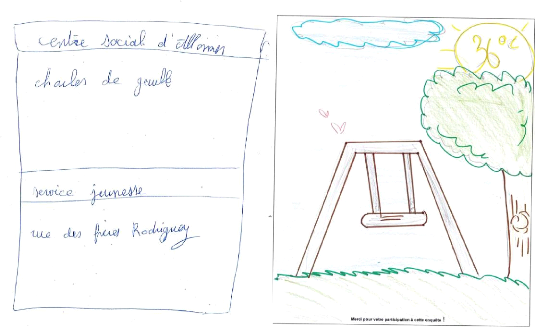 centre social d'
charles de gaulle
service jeunesse
rue des frères Rodriguez
36°C
Merci pour votre participation à cette enquête !